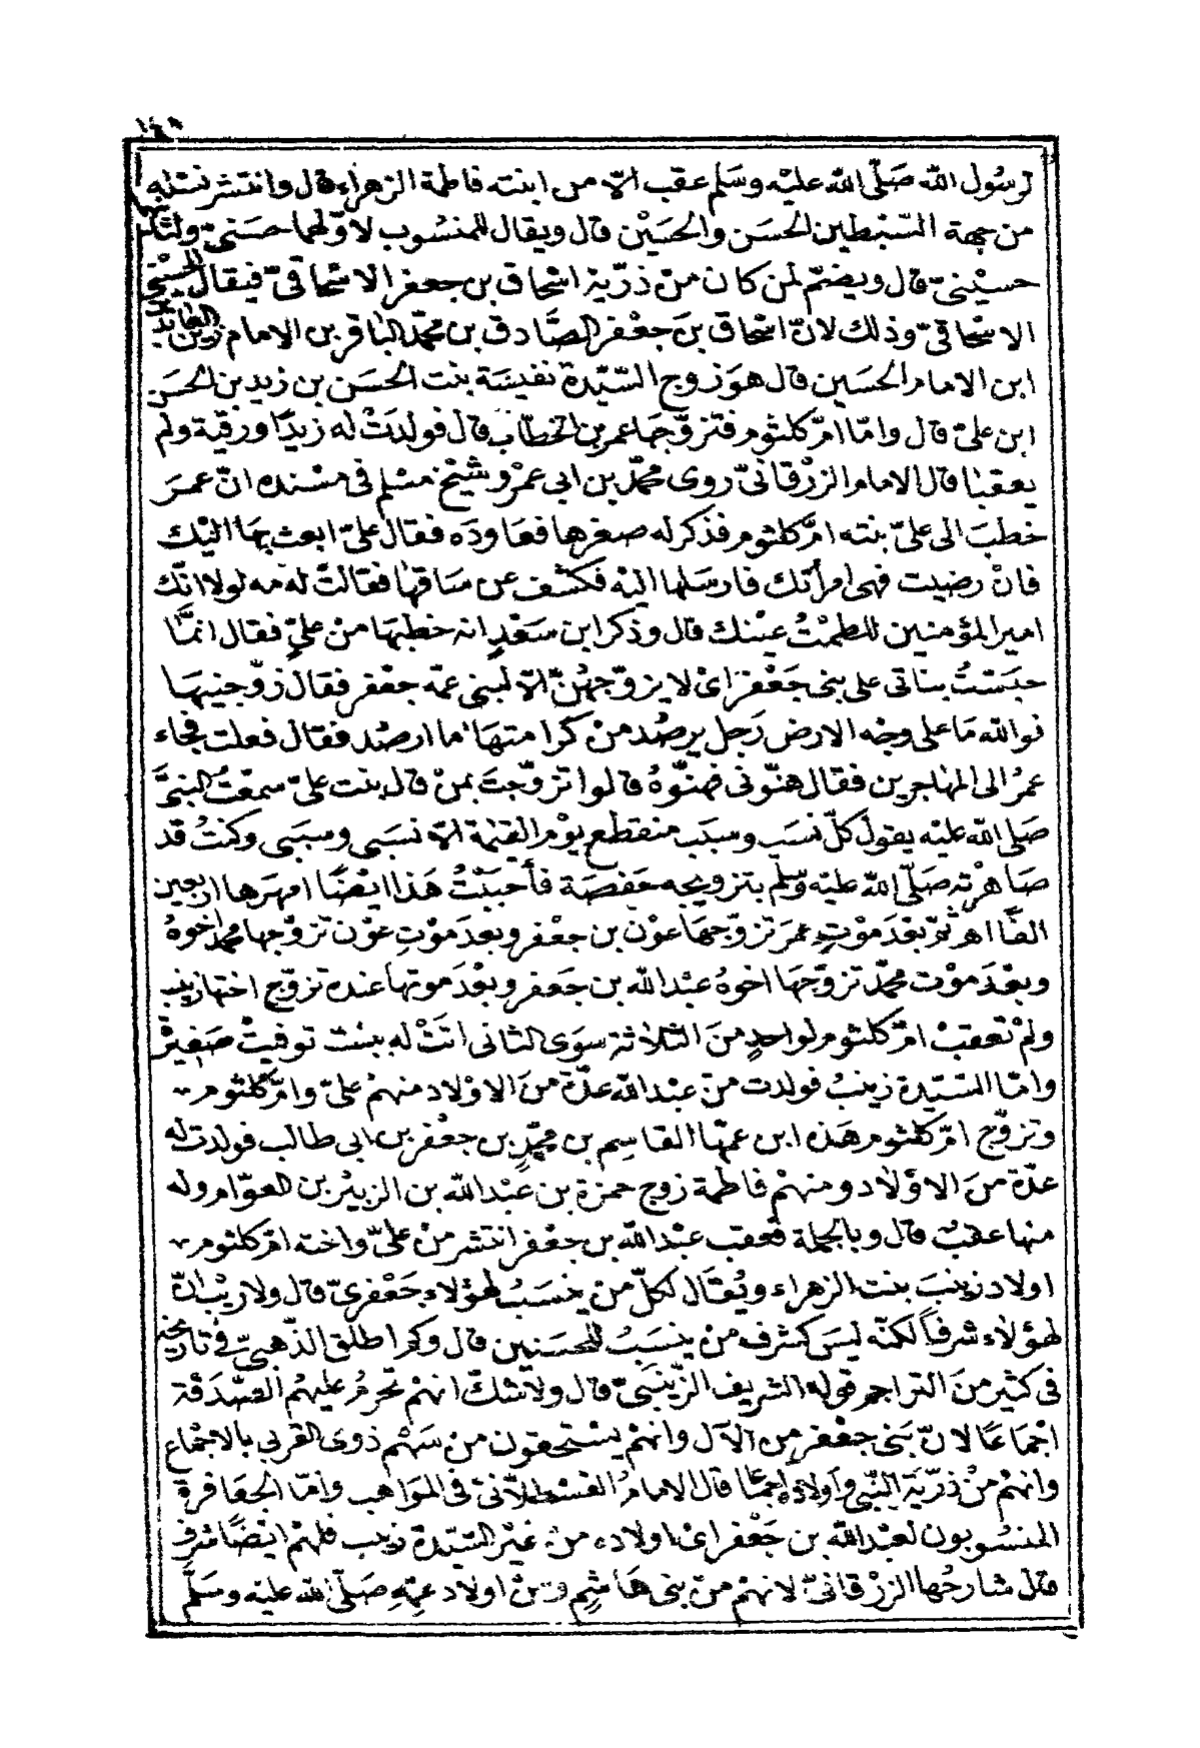 ١٤٩
لرسول الله صلّى الله عليه وسلم عقب الّا من ابنته فاطمة الزهراء قال وانتشر نسله
من جهة السّبطين الحسن والحسين قال ويقال للمنسوب لاوّلهما حسنىّ ولثانيهما
حسينىّ قال ويضمّ لمن كان منْ ذرّية اسْحاق بن جعفر الاسْحاقىّ فيقال الحسينى
الاسْحاقىّ وذلك لانّ اسْحاق بن جعْفر الصَّادق بن محمّد الباقر بن الامام زين العابدين
ابن الامام الحسين قال هو زوج السّيّدة نفيسة بنت الحسَن بن زيد بن الحسَن
ابن علىّ قال وامّا امّ كلثوم فتزوّجها عمر بن الخطّاب قال فولدتْ له زيدًا ورقيّة ولم
يعقبا قال الامام الزرْقانىّ روى محمّد بن ابى عمرْو شيْخ مسْلم فى مسْنده انّ عمرَ
خطبَ الى علىّ بنته امّ كلثوم فذكر له صغرها فعاودَه فقال علىّ ابعث بهَا اليْك
فانْ رضيت فهى امرأتك فارسَلها اليْه فكشف عن سَاقها فقالتْ له مه لولا انّك
امير المؤمنين للطمْتُ عيْنك قال وذكر ابن سَعْدٍ انه خطبهَا منْ علىٍّ فقال انمَّا
حبَسْتُ بناتى على بنى جَعْفر اىْ لا يزوّجهُنّ الّا لبنى عمّه جعْفر فقال زوّجنيهَا
فوالله مَا على وجْه الارض رَجل يرصُد منْ كرامتهَا ما ارصُد فقال فعلت فجاء
عمرُ الى المهاجرين فقال هنّونى فهنّوهُ قالوا تزوّجتَ بمنْ قال بنت علىّ سمعْتُ النبىَّ
صَلى الله عليْه يقول كلّ نسَب وسبَب منقطع يوْم القيٰمة الّا نسَبى وسببى وكنتُ قد
صَاهرته صَلّى الله عليْه وسَلّم بتزويجه حفصَة فأحْببْتُ هَذا ايْضًا امهرَها اربعين
الفًا اهـ ثمّ بعْدَ موْت عمرَ تزوّجهَا عوْن بن جعْفر وبعدَ موْتِ عوْن تزوّجها محمّد اخوهُ
وبعْدَ موْت محمّد تزوّجَهَا اخوهُ عبْد الله بن جَعفر وبعْدَ موتها عنده تزوّج اختها زينب
ولمْ تعقبْ امّ كلثوم لواحدٍ منَ الثلاثة سوَى الثانى اتتْ له ببنْت توفّيتْ صَغيرة
وامّا السّيّدة زينبُ فولدت منْ عبْد الله عدّة منَ الاوْلاد منهمْ علىّ وامّ كلثوم
وتزوّج امّ كلثوم هَذه ابن عمّها القاسِم بن محمّدٍ بن جعْفر بن ابى طالب فولدت له
عدّة منَ الاوْلاد ومنهمْ فاطمة زوج حمزة بن عبْد الله بن الزبيْر بن العوّام وله
منها عقبٌ قال وبالجملة فعقب عبْد الله بن جعْفر انتشر منْ علىّ واخته امّ كلثوم
اولاد زينبَ بنت الزهراء ويُقال لكلّ منْ ينسَبُ لهؤلاء جَعْفرىّ قال ولا ريْب انّ
لهؤلاء شرفاً لكنّه ليسَ كشرف منْ ينسَبُ للحسَنين قال وكم اطلق الذّهبىّ فى تاريخه
فى كثير منَ التراجم قوله الشريف الزّينبىّ قال ولا شكّ انهمْ تحرمُ عليهمُ الصّدَقة
اجْمَاعًا لانّ بَنى جعْفر من الآل وانهمْ يسْتحقون منْ سَهْم ذوى القربى بالاجْماع
وانهمْ منْ ذرّيّة النّبىّ وأولاده اجماعا قال الامامُ القسْطلّانىّ فى المَوَاهب وامّا الجَعَافرة
المنسُوبون لعبْد الله بن جَعْفر اىْ اولاده منْ غيْر السّيّدة زينب فلهمْ ايْضًا شرف
قال شارحُها الزرْقانىّ لانهمْ منْ بنى هَاشِمٍ ومنْ اولاد عمّهِ صَلّى الله عليْه وسَلّم